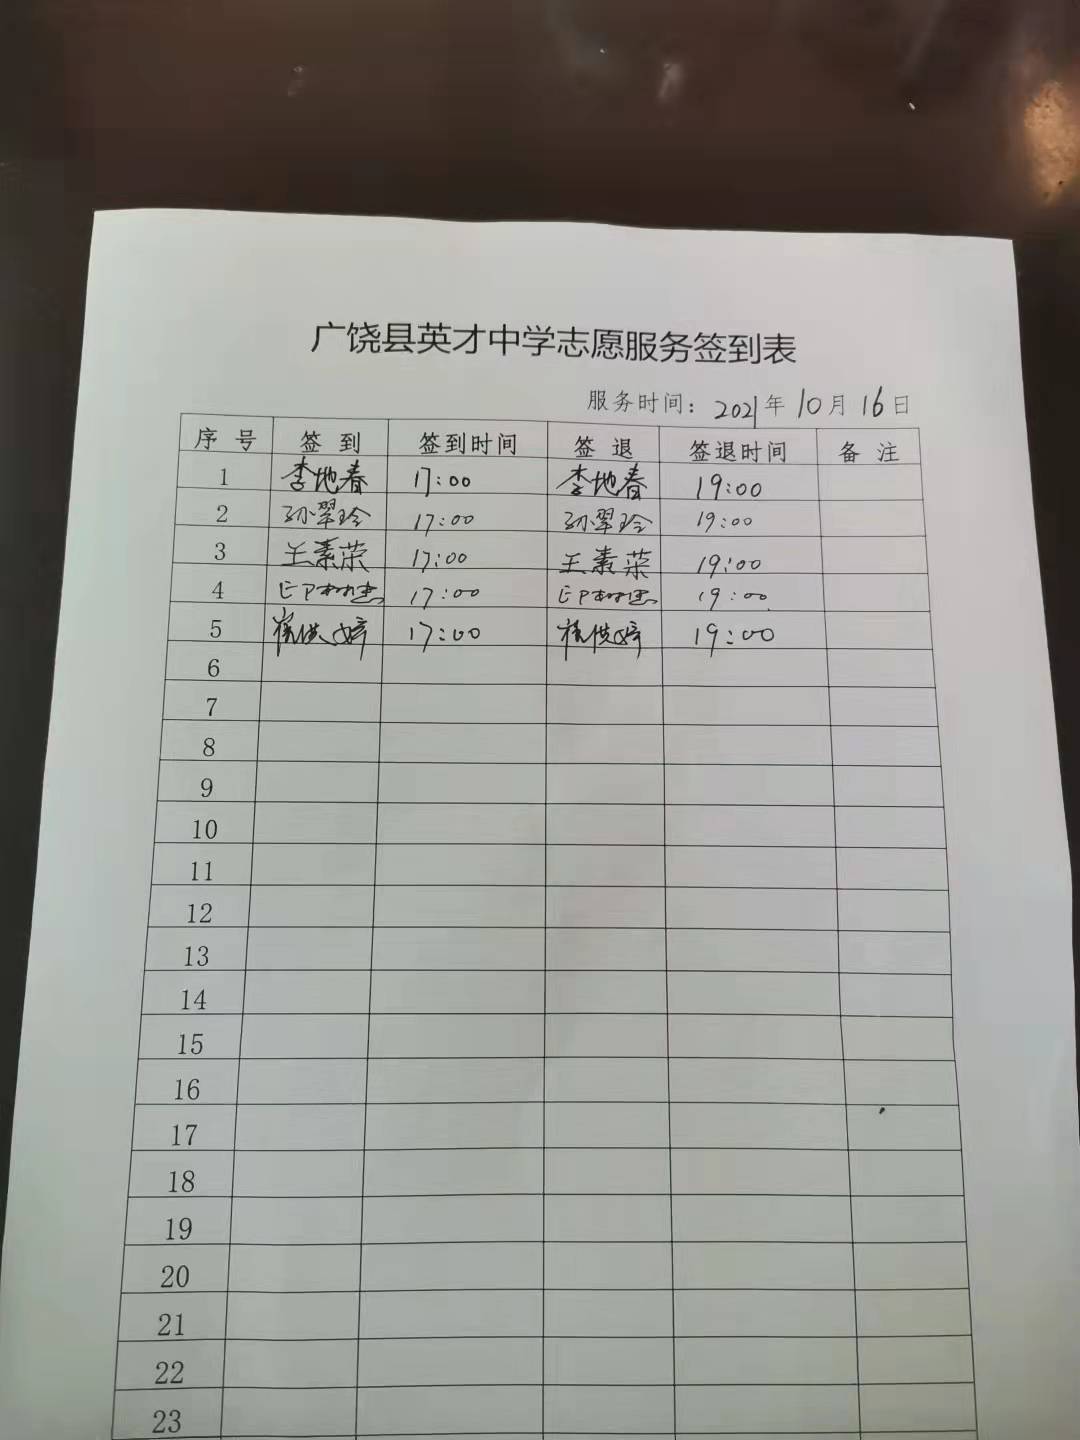 广饶县英才中学志愿服务签到表
服务时间：2021年10月16日
序号 签到 签到时间 签退 签退时间 备注
1 李地春 17:00 李地春 19:00
2 孙翠玲 17:00 孙翠玲 19:00
3 王素荣 17:00 王素荣 19:00
4 17:00 19:00
5 17:00 19:00
6
7
8
9
10
11
12
13
14
15
16
17
18
19
20
21
22
23